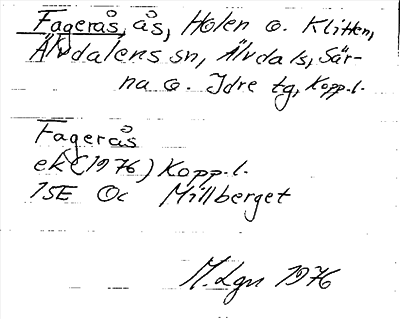 Fagerås, ås, Holen o. Klitten,
Älvdalens sn, Älvdals, Sär-
na o. Idre tg, Kopp.l.
Fagerås
ek (1976) Kopp.l.
15E 0c Millberget
M.Lgn 1976